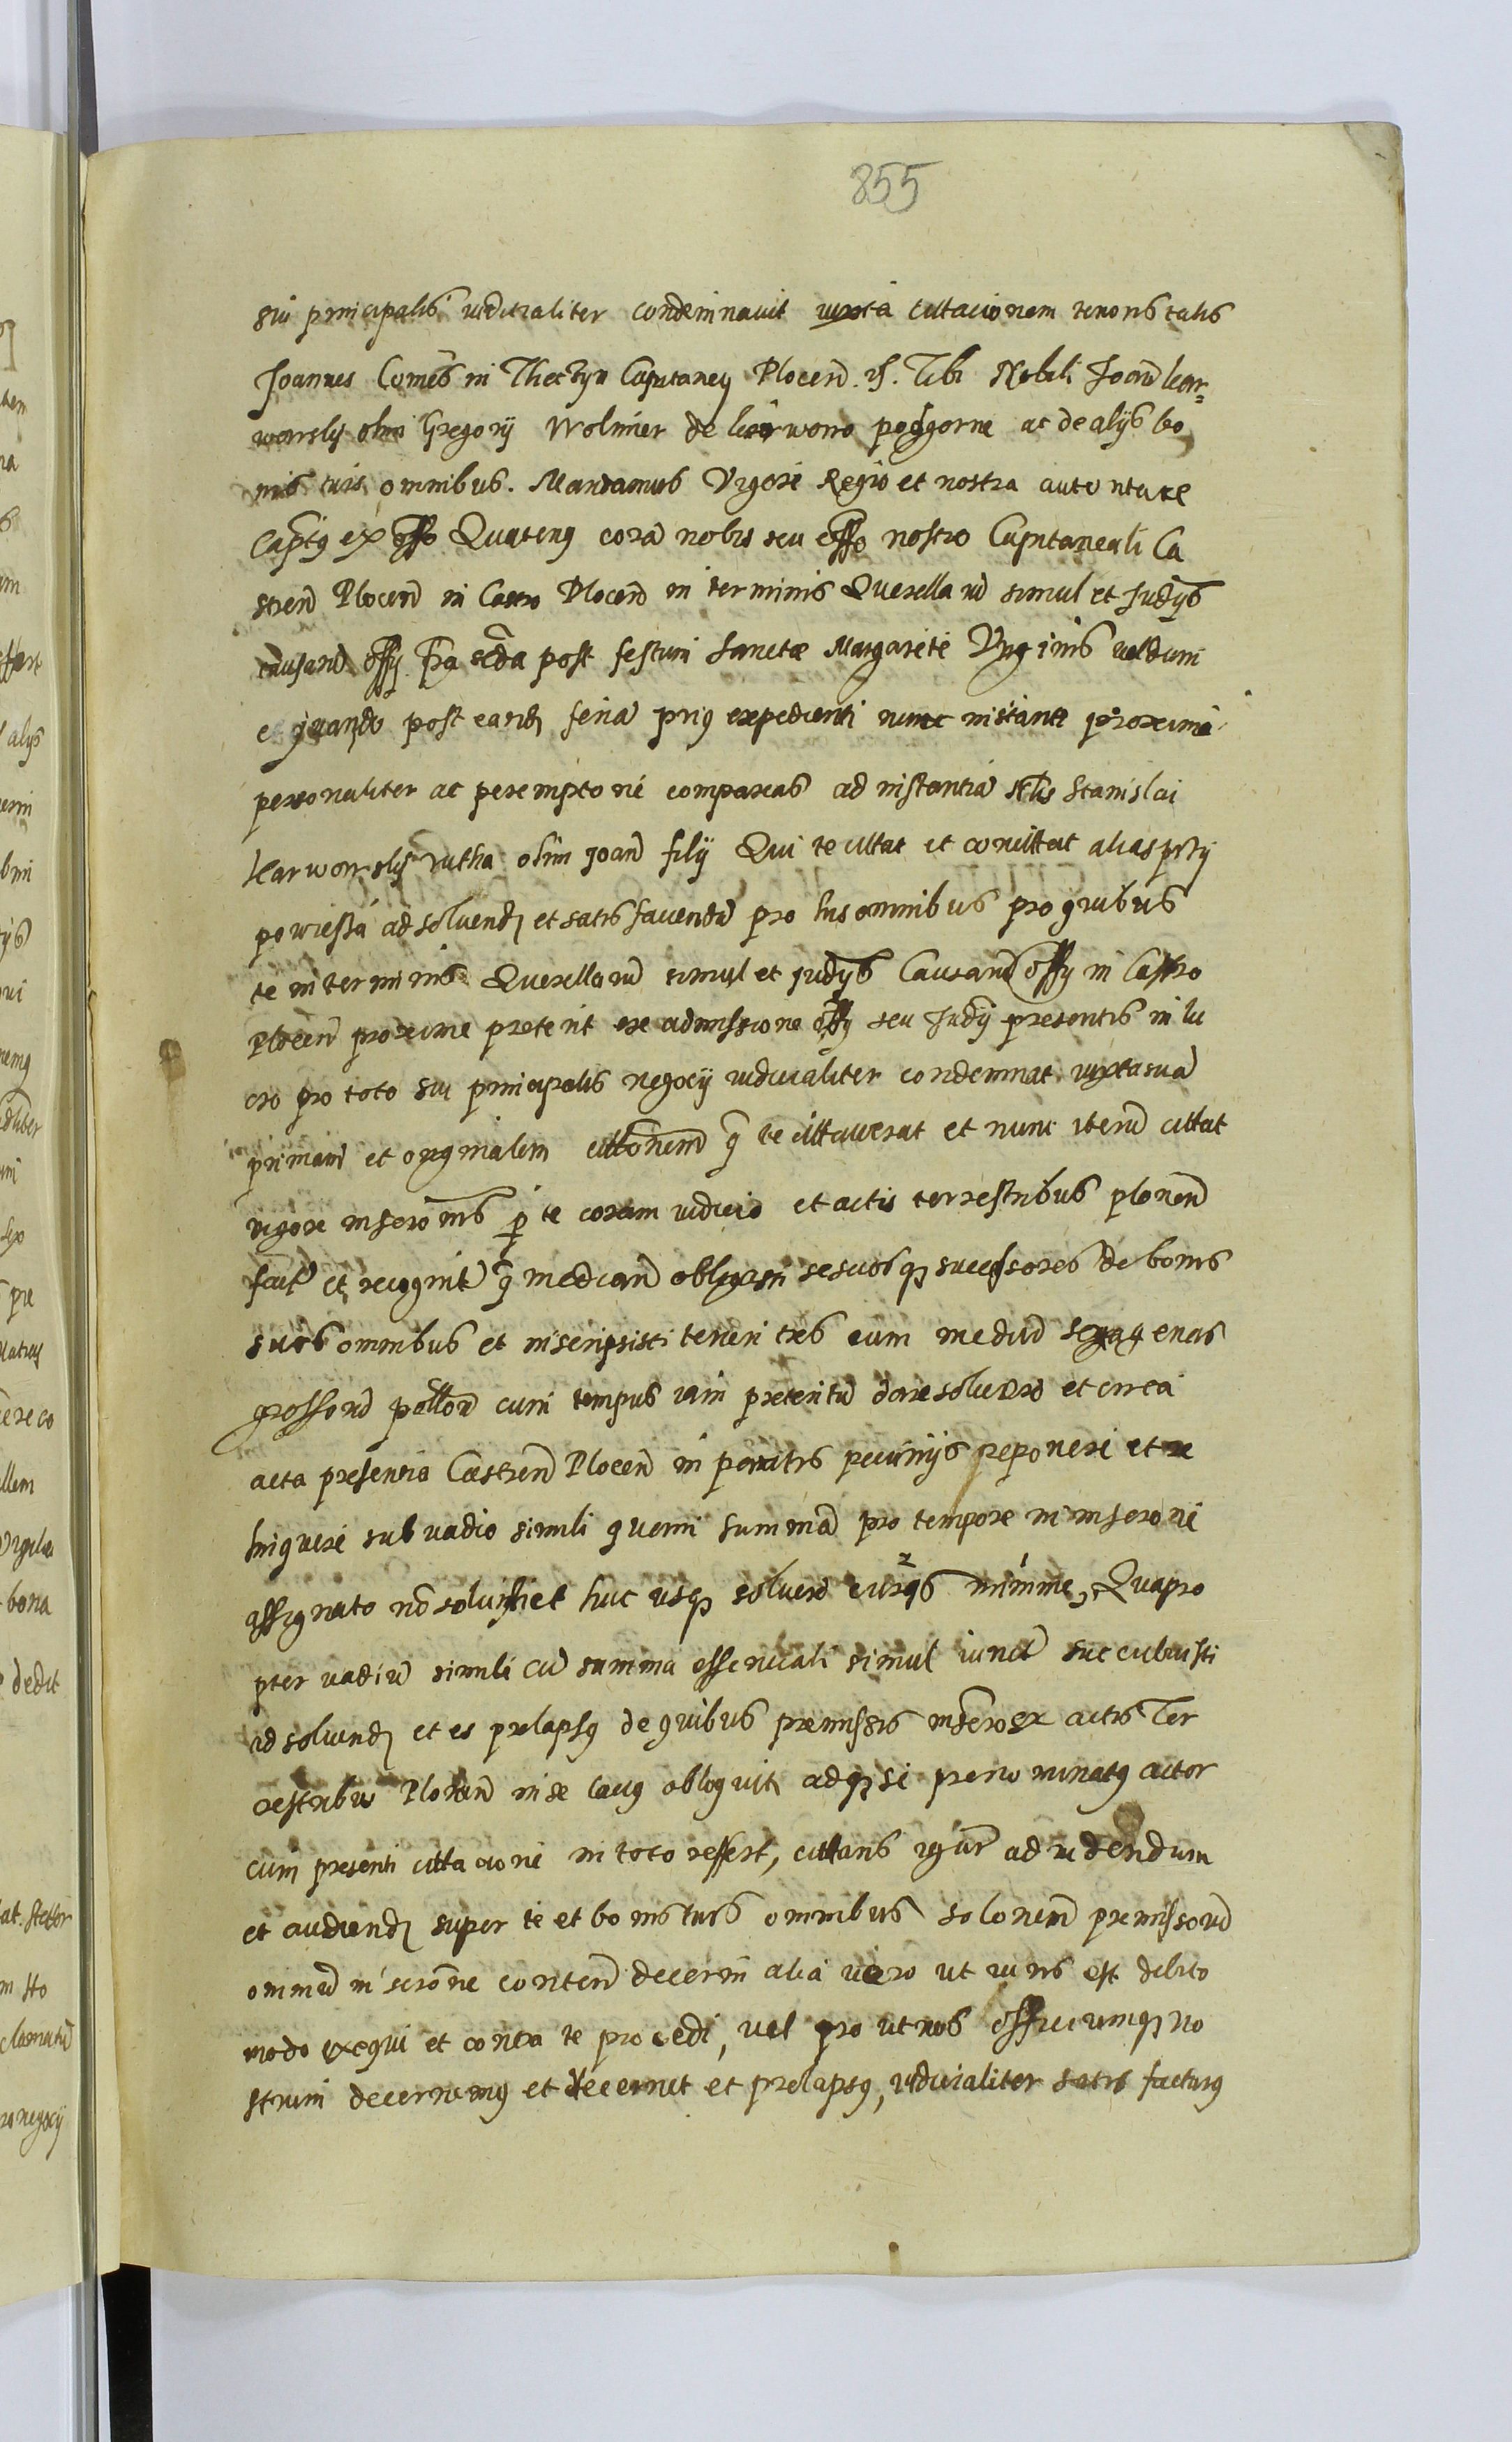 855
sui principalis iudicialiter condemnavit iuxta cittacionem tenoris talis
Joannes Comes in Thęczyn Capitaneus Plocen. rc. Tibi Nobili Joan Kar-
wowsky olim Gregorij Wolmier de Karwowo podgorne ac de alijs bo
nis tuis omnibus. Mandamus Vigore Regio et nostra autoritate
Captus ex offo Quatenus cora nobis seu offo nostro Capitaneali Ca
stren Plocen in Castro Plocen in terminis Querellaru simul et Judijs
causaru offy. fra scda post festum Sanctæ Margarete Virginis
et quando post eand feria prius expedienti nunc instante proxime
personaliter ac peremptorie compareas ad instantia Nlis Stanislai
Karwowsky rutha olim Joan filij Qui te cittat et concittat alias przy
powiessa ad solvend et satisfaciendu pro his omnibus pro quibus
te in terminis Querellaru simul et judijs Causaru offy in Castro
Plocen proxime preterit ex admissione offy seu Judy presentis in lu
cro pro toto sui principalis negocij iudicialiter condemnat. iuxta sua
primam et originalem cittonem q te cittaverat et nunc iteru cittat
vigore inscronis p te coram iudicio et actis terrestribus plocen
fact et recognit q median obligasti se suosq successores de bonis
suis omnibus et inscripsisti teneri tres cum mediu sexagenas
grossoru pollon cum tempus iam preteritu dare solvere et circa
acta presentia Castren Plocen in paratis pecunijs reponere et re
linquere sub vadio simili quem summa pro tempore in inscrone
assignato no solvisti et huc usq solvere curas minime, Quapro
pter vadiu simili cu summa essenciali simul iunct succubuisti
ad solvend et es prelapsus de quibus premissis inscro ex actis Ter
restribus Plocen in se latius obloquit adqse prenominatus actor
cum presenti cittacione in toto reffert, cittaris igitur ad videndum
et audiend super te et bonis tuis omnibus solonem premissoru
omniu in scrone conten decerni alia vero ut iuris est debito
modo exequi et contra te procedi, vel pro ut nos officiumq no
strum decernimus et decernet et prelapsus, iudicialiter satis facturus